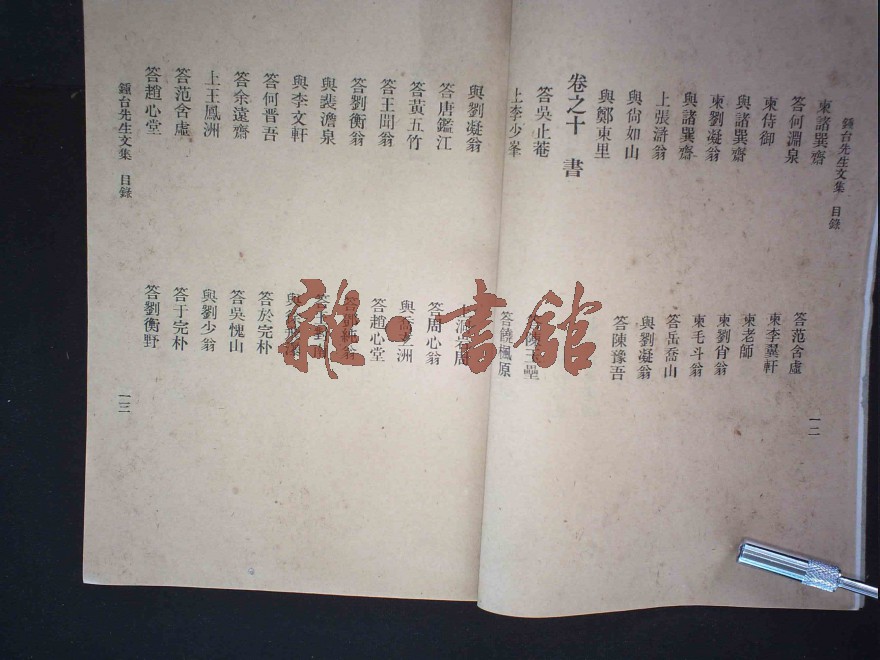 鍾台先生文集 目錄 一二
柬諸巽齋 答范含虛
答何淵泉 柬李翼軒
柬侍御 柬老師
與諸巽齋 柬劉肖翁
柬劉凝翁 柬毛斗翁
與諸巽齋 答岳喬山
上張滸翁 與劉凝翁
與尙如山 答陳豫吾
與鄭東里
卷之十 書
答吳止菴 答陳玉壘
上李少峯 答饒楓原
與劉凝翁
答唐鑑江 答周心翁
答黃五竹
答王聞翁 答趙心堂
答劉衡翁
與裴澹泉
與李文軒
答何晋吾 答於完朴
答余遠齋 答吳愧山
上王鳳洲 與劉少翁
答范含虛 答于完朴
答趙心堂 答劉衡野
鍾台先生文集 目錄 一三
雜·書館